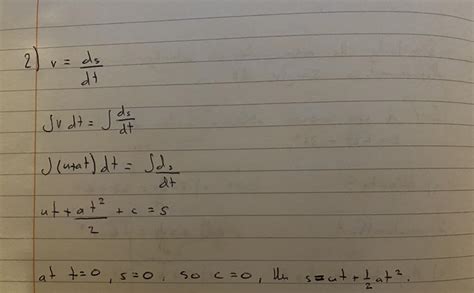 2) v = ds/dt
∫v dt = ∫ds/dt
∫(u+at) dt = ∫ds/dt
ut + at²/2 + c = s
at t=0, s=0. so c=0, s=ut+½at².